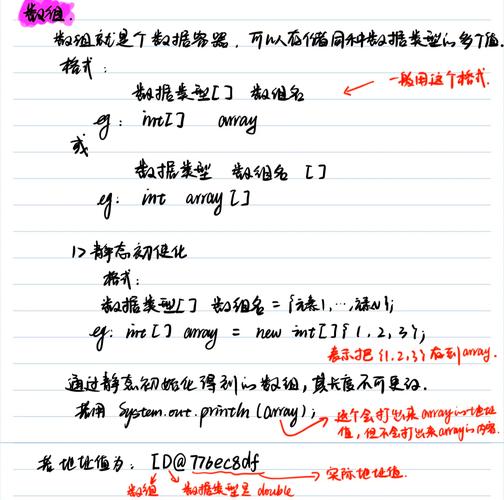 数组.
数组就是个数据容器，可以存储同种数据类型的多个值.
格式：
数据类型[] 数组名 ← 一般用这个格式.
eg：int[] array
或
数据类型 数组名 []
eg：int array[]
1> 静态初始化
格式：
数据类型[] 数组名 = {元素1, …, 元素N};
eg：int[] array = new int[]{1, 2, 3};
表示把{1,2,3}存到array.
通过静态初始化得到的数组,其长度不可更改.
若用 System.out.println(array); → 这个会打出来array的地址
值，但不会打出来array的内容.
若地址值为：[D@776ec8df → 实际地址值.
数组 数据类型是double